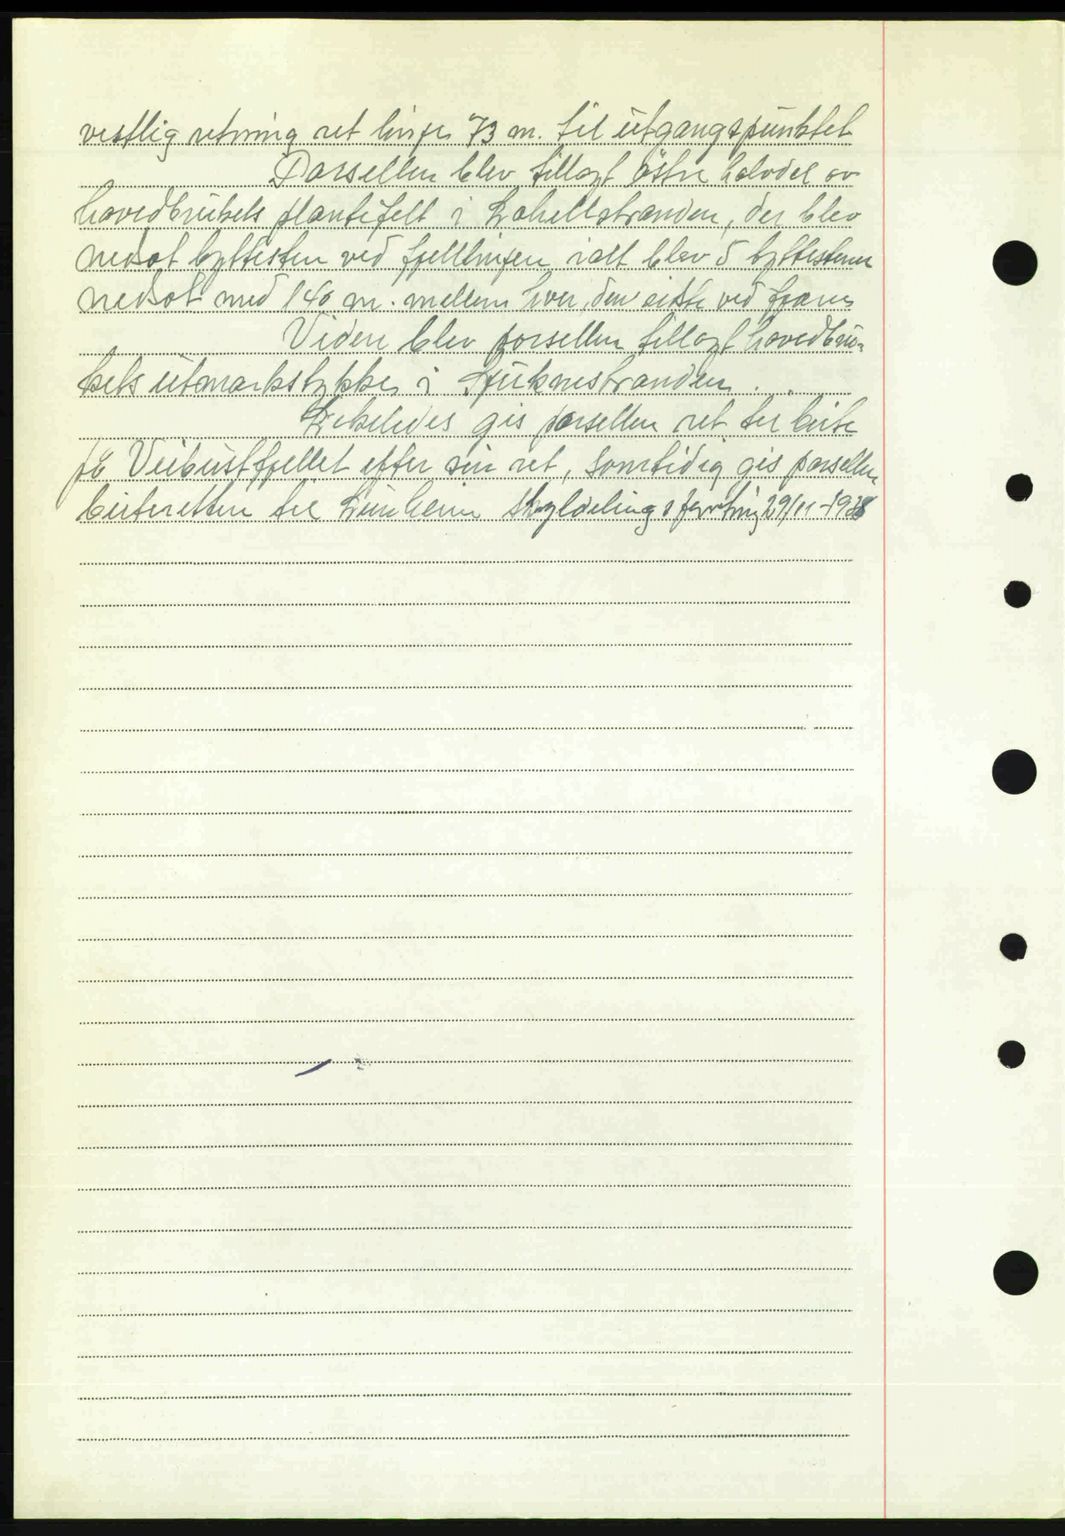 vestlig retning ret linje 73 m. til utgangspunktet
Parsellen blev tillagt östre halvdel av
hovedbrukets plantefelt i stranden, der blev
nedsat byttesten ved fjellinjen ialt blev 5 byttestener
nedsat med 140 m. mellem hver, den siste ved fjæren
Videre blev parsellen tillagt hovedbru-
kets utmarkstykke i stranden.
Likeledes gis parsellen ret til beite
på Veibustfjellet efter sin ret, samtidig gis parsellen
beiteretten til skyldelings forretning 29/11-1938